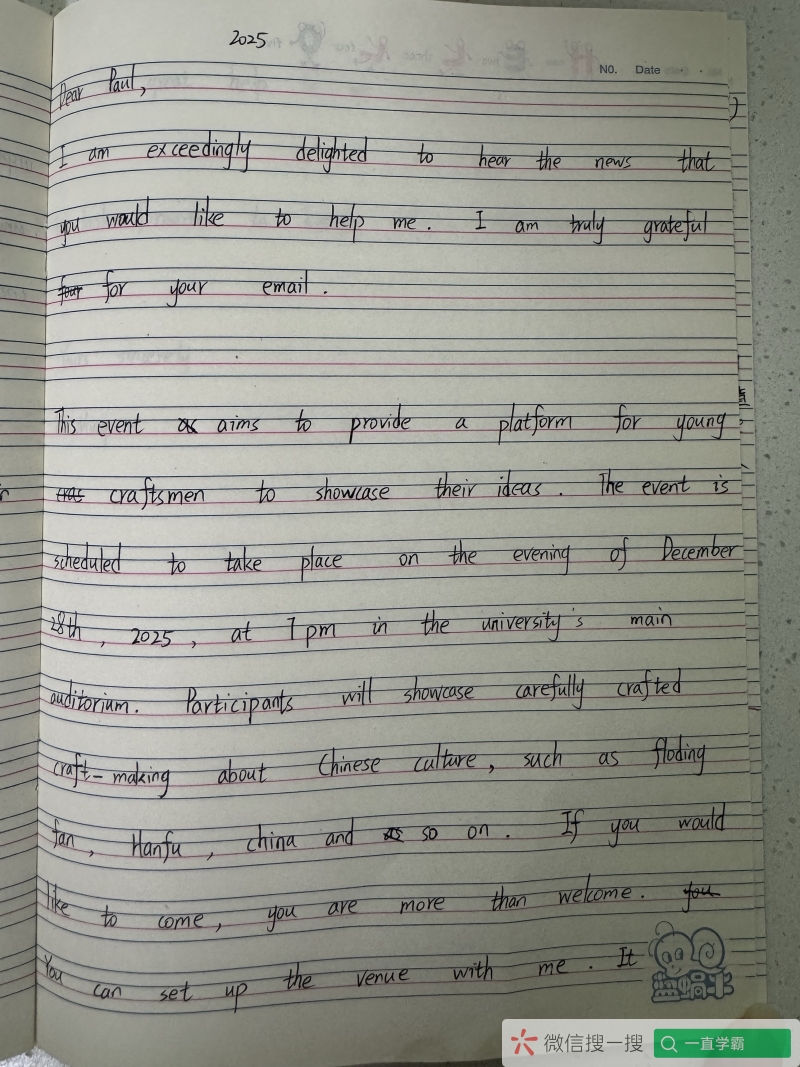 2025
N0. Date
Dear Paul,
I am exceedingly delighted to hear the news that
you would like to help me. I am truly grateful
four for your email.
This event as aims to provide a platform for young
crac craftsmen to showcase their ideas. The event is
scheduled to take place on the evening of December
28th, 2025, at 7 pm in the university's main
auditorium. Participants will showcase carefully crafted
craft-making about Chinese culture, such as floding
fan, Hanfu, china and as so on. If you would
like to come, you are more than welcome. you
You can set up the venue with me. It
盐蜗牛
微信搜一搜
一直学霸